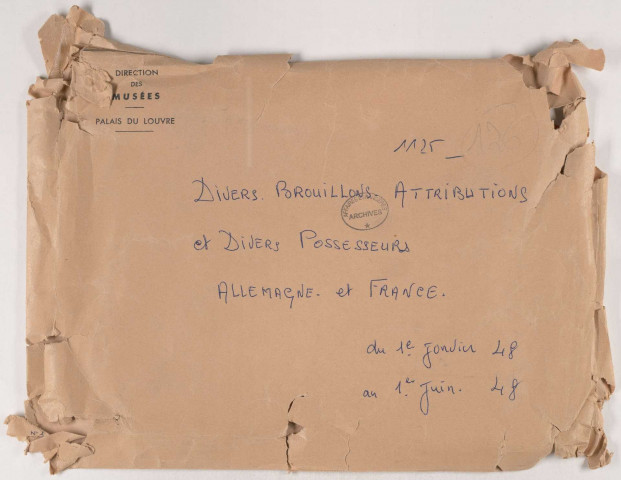 DIRECTION
DES
MUSÉES
PALAIS DU LOUVRE
1125_
DIVERS. BROUILLONS. ATTRIBUTIONS
ARCHIVES
et DIVERS POSSESSEURS
ALLEMAGNE. et FRANCE.
du 1e Janvier 48
au 1er Juin. 48